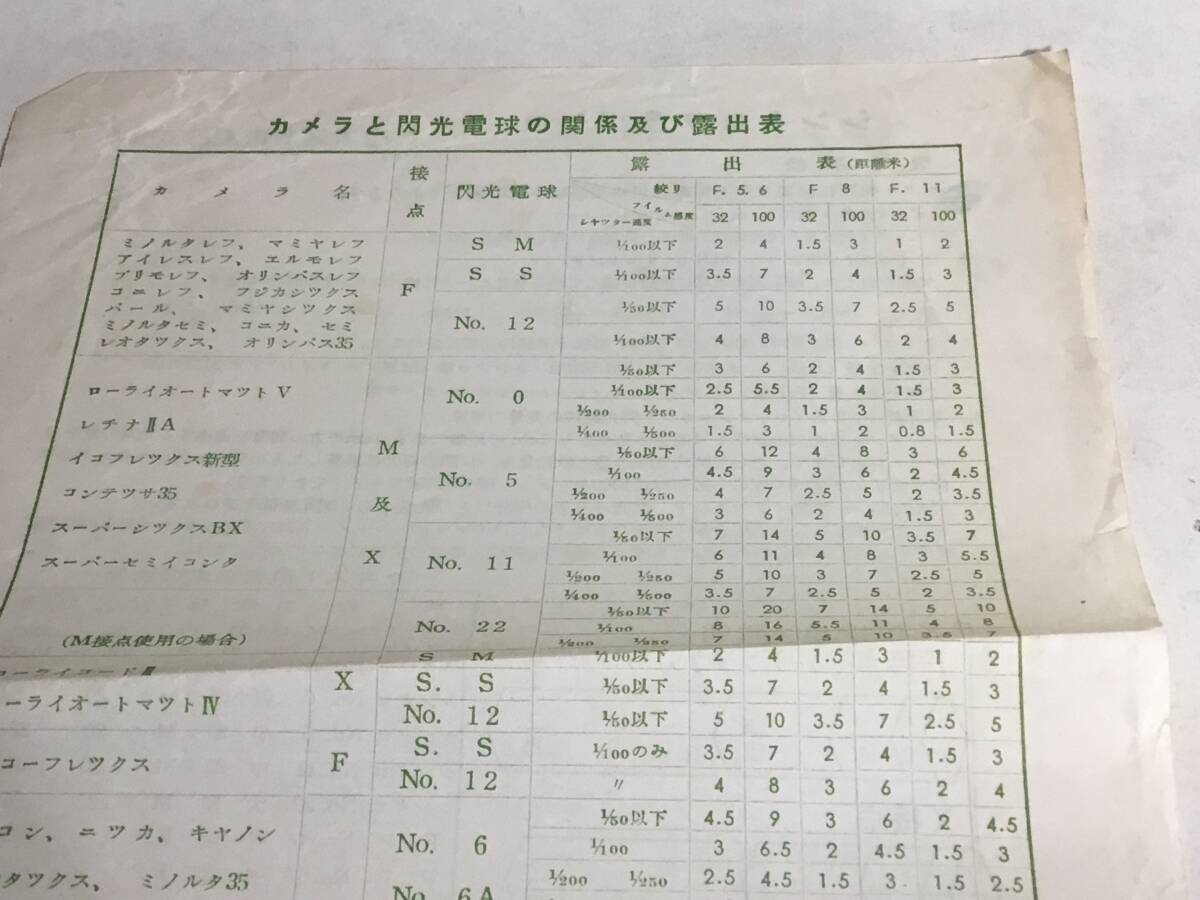 カメラと閃光電球の関係及び露出表
カメラ名 接点 閃光電球 露出表(距離米)
絞り F. 5. 6 F 8 F. 11
フイルム感度
レヤツター速度 32 100 32 100 32 100
ミノルタレフ、 マミヤレフ
アイレスレフ、 エルモレフ
プリモレフ、 オリンパスレフ
コニレフ、 フジカシツクス
パール、 マミヤシツクス
ミノルタセミ、 コニカ、 セミ
レオタツクス、 オリンパス35
F
S M 1/100以下 2 4 1.5 3 1 2
S S 1/100以下 3.5 7 2 4 1.5 3
No. 12 1/50以下 5 10 3.5 7 2.5 5
1/100以下 4 8 3 6 2 4
ローライオートマツトV
レチナⅡA
イコフレツクス新型
コンテツサ35
スーパーシツクスBX
スーパーセミイコンタ
(M接点使用の場合)
M及X
No. 0 1/50以下 3 6 2 4 1.5 3
1/100以下 2.5 5.5 2 4 1.5 3
1/200 1/250 2 4 1.5 3 1 2
1/400 1/500 1.5 3 1 2 0.8 1.5
No. 5 1/50以下 6 12 4 8 3 6
1/100 4.5 9 3 6 2 4.5
1/200 1/250 4 7 2.5 5 2 3.5
1/400 1/500 3 6 2 4 1.5 3
No. 11 1/50以下 7 14 5 10 3.5 7
1/100 6 11 4 8 3 5.5
1/200 1/250 5 10 3 7 2.5 5
1/400 1/500 3.5 7 2.5 5 2 3.5
No. 22 1/50以下 10 20 7 14 5 10
1/100 8 16 5.5 11 4 8
1/200 1/250 7 14 5 10 3.5 7
ーライコードⅢ
ーライオートマツトⅣ
X
S M 1/100以下 2 4 1.5 3 1 2
S. S 1/50以下 3.5 7 2 4 1.5 3
No. 12 1/50以下 5 10 3.5 7 2.5 5
コーフレツクス
F
S. S 1/100のみ 3.5 7 2 4 1.5 3
No. 12 〃 4 8 3 6 2 4
コン、ニツカ、キヤノン
タツクス、 ミノルタ35
No. 6 1/50以下 4.5 9 3 6 2 4.5
1/100 3 6.5 2 4.5 1.5 3
1/200 1/250 2.5 4.5 1.5 3 1.5 2.5
No. 6A